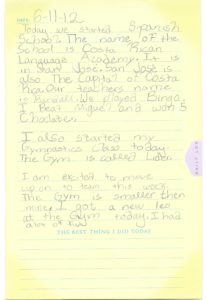 DATE: 6-11-12
Today we started Spanish
School. The name of the
School is Costa Rican
Language Academy. It is
in San Jose. San Jose is
also The Capital of Costa
Rica. Our teachers name
is Randall. We played Bingo.
I Beat Miguel and won 5
Choclates.
I also started my
Gymnastics Class today.
The Gym is called
I am excited to move
up on to team this week.
The Gym is smaller then
mine. I got a new leo
at the Gym today. I had
alot of fun
THE BEST THING I DID TODAY